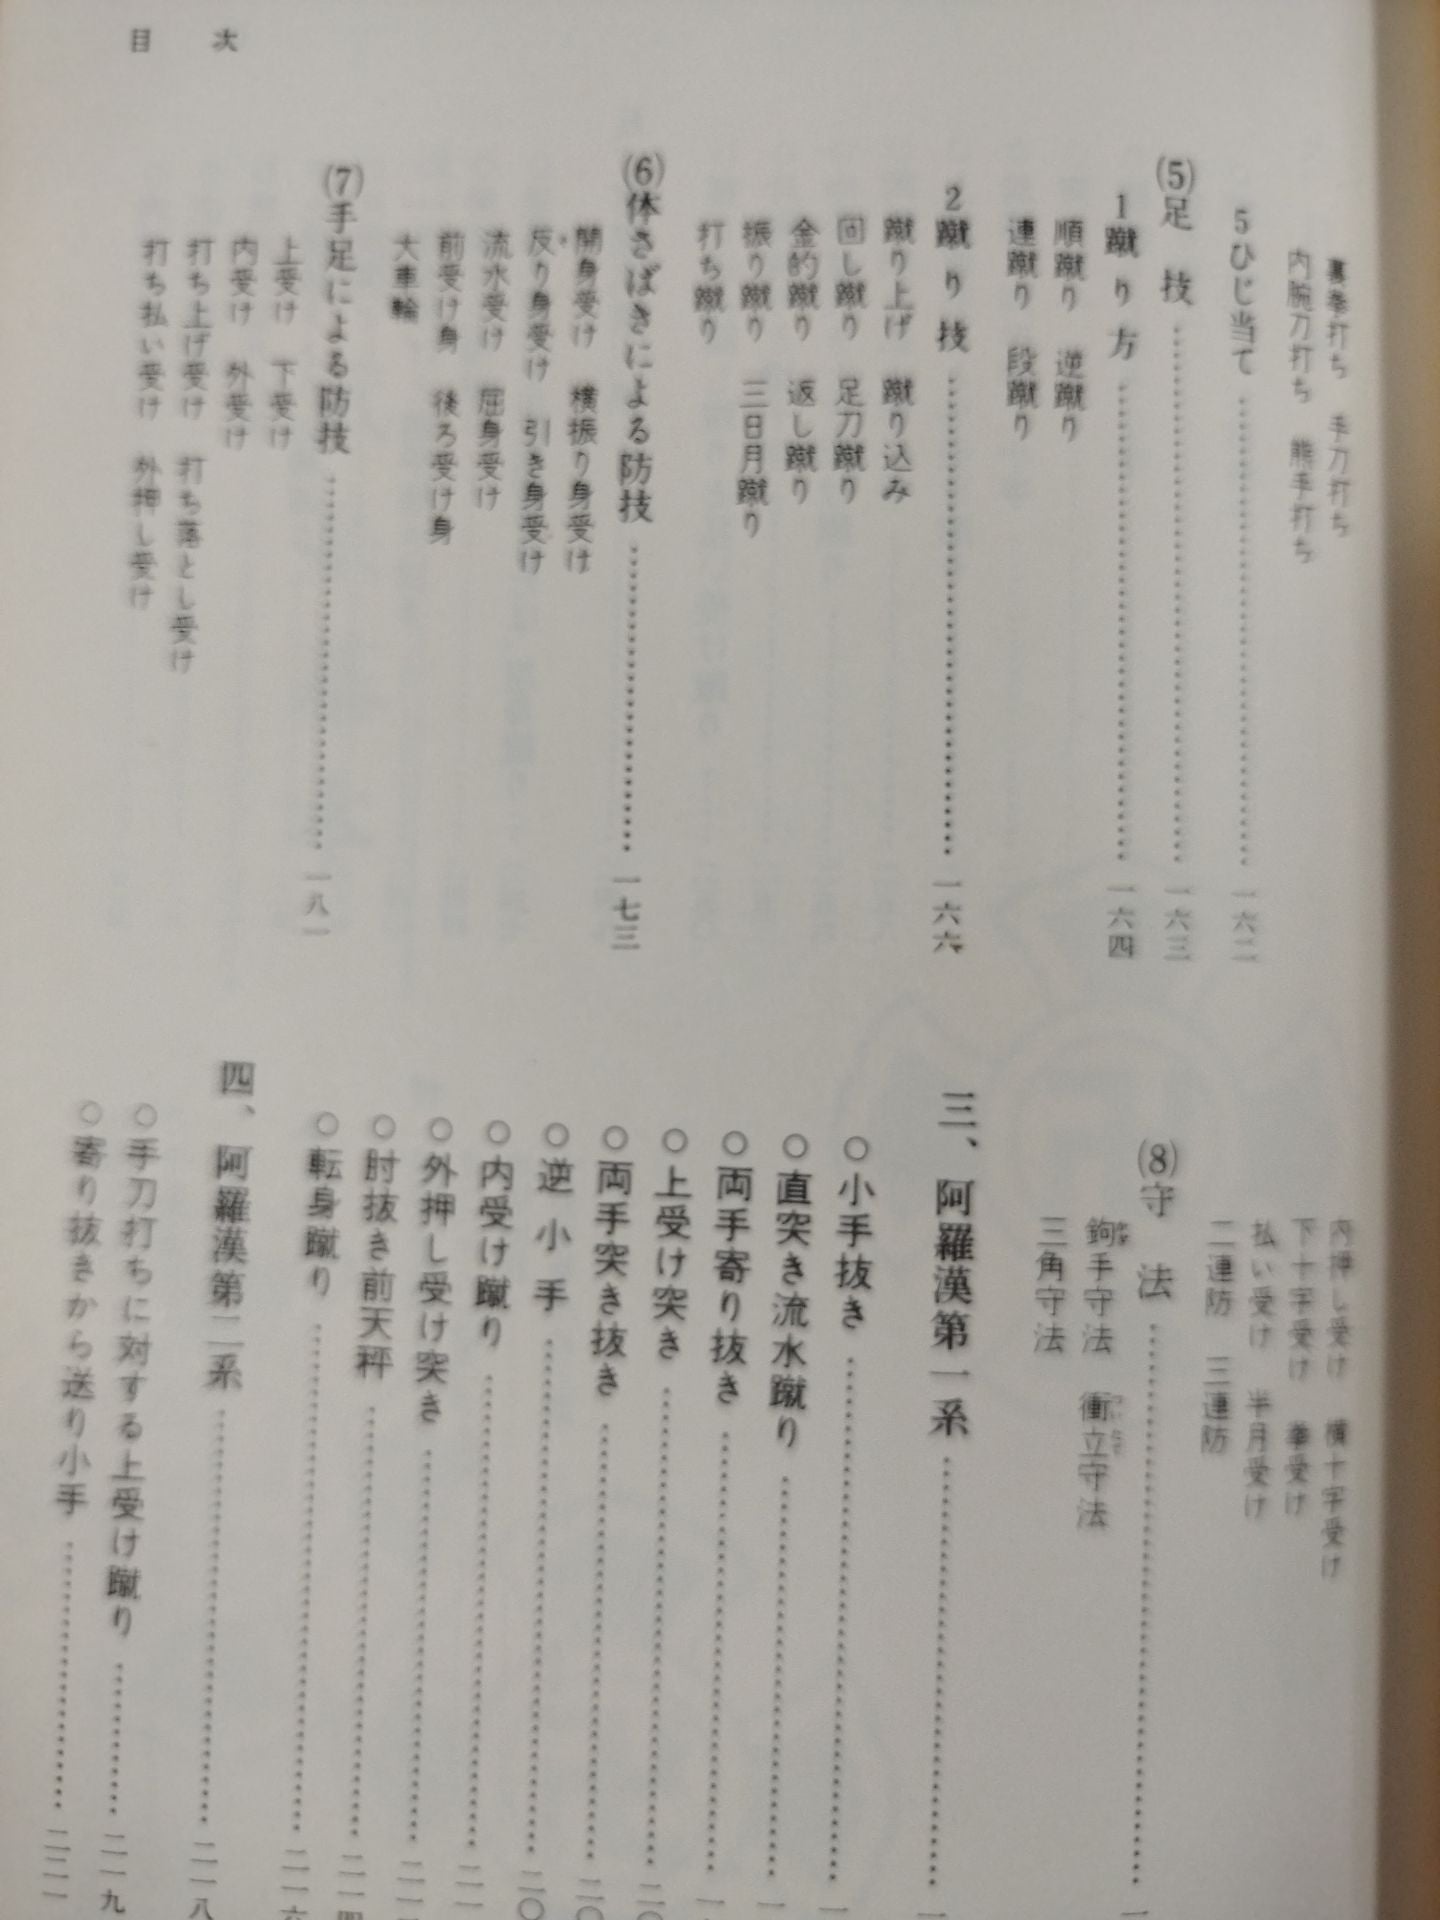 目次
裏拳打ち　手刀打ち
内腕刀打ち　熊手打ち
5 ひじ当て……………一六二
(5) 足技……………一六三
1 蹴り方……………一六四
順蹴り　逆蹴り
連蹴り　段蹴り
2 蹴り技……………一六六
蹴り上げ　蹴り込み
回し蹴り　足刀蹴り
金的蹴り　返し蹴り
振り蹴り　三日月蹴り
打ち蹴り
(6) 体さばきによる防技……………一七三
開身受け　横振り身受け
反り身受け　引き身受け
流水受け　屈身受け
前受け身　後ろ受け身
大車輪
(7) 手足による防技……………一八一
上受け　下受け
内受け　外受け
打ち上げ受け　打ち落とし受け
打ち払い受け　外押し受け
内押し受け　横十字受け
下十字受け　拳受け
払い受け　半月受け
二連防　三連防
(8) 守法……………
鉤手守法　衝立守法
三角守法
三、阿羅漢第一系……………
○小手抜き……………
○直突き流水蹴り……………
○両手寄り抜き……………
○上受け突き……………
○両手突き抜き……………
○逆小手……………
○内受け蹴り……………
○外押し受け突き……………
○肘抜き前天秤……………二一四
○転身蹴り……………二一六
四、阿羅漢第二系……………二一八
○手刀打ちに対する上受け蹴り……………二一九
○寄り抜きから送り小手……………二二一